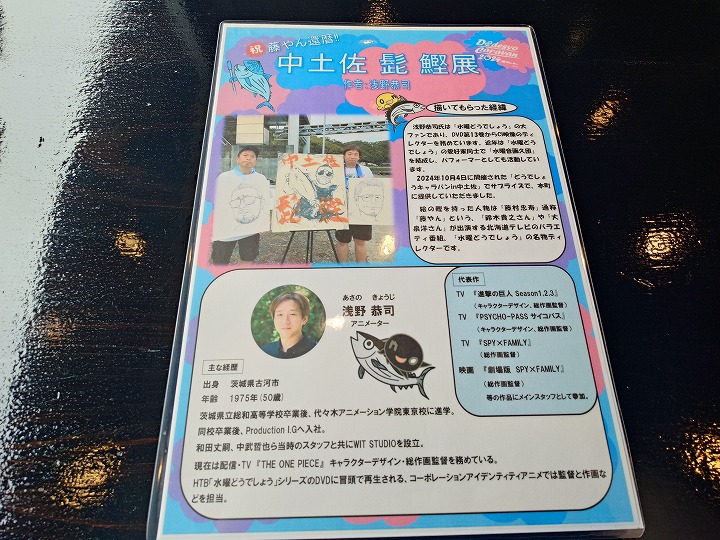 祝 藤やん還暦!!
中土佐 髭 鰹展
作者:浅野恭司
Dodesyo
Caravan
2024
描いてもらった経緯
浅野恭司氏は「水曜どうでしょう」の大
ファンであり、DVD第13巻からCI映像のディ
レクターを務めています。近年は「水曜どうで
しょう」の愛好家同士で「水曜会画久団」
を結成し、パフォーマーとしても活動してい
ます。
2024年10月4日に開催された「どうでしょ
うキャラバンin中土佐」でサプライズで、本町
に提供していただきました。
絵の鰹を持った人物は「藤村忠寿」通称
「藤やん」という、「鈴木貴之さん」や「大
泉洋さん」が出演する北海道テレビのバラエ
ティ番組、「水曜どうでしょう」の名物ディ
レクターです。
中土佐
髭鰹
あさの きょうじ
浅野 恭司
アニメーター
代表作
TV 『進撃の巨人 Season1,2,3』
(キャラクターデザイン、総作画監督)
TV 『PSYCHO-PASS サイコパス』
(キャラクターデザイン、総作画監督)
TV 『SPY×FAMILY』
(総作画監督)
映画 『劇場版 SPY×FAMILY』
(総作画監督)
等の作品にメインスタッフとして参加。
主な経歴
出身 茨城県古河市
年齢 1975年(50歳)
茨城県立総和高等学校卒業後、代々木アニメーション学院東京校に進学。
同校卒業後、Production I.Gへ入社。
和田丈嗣、中武哲也ら当時のスタッフと共にWIT STUDIOを設立。
現在は配信・TV 『THE ONE PIECE』 キャラクターデザイン・総作画監督を務めている。
HTB「水曜どうでしょう」シリーズのDVDに冒頭で再生される、コーポレーションアイデンティティアニメでは監督と作画な
どを担当。